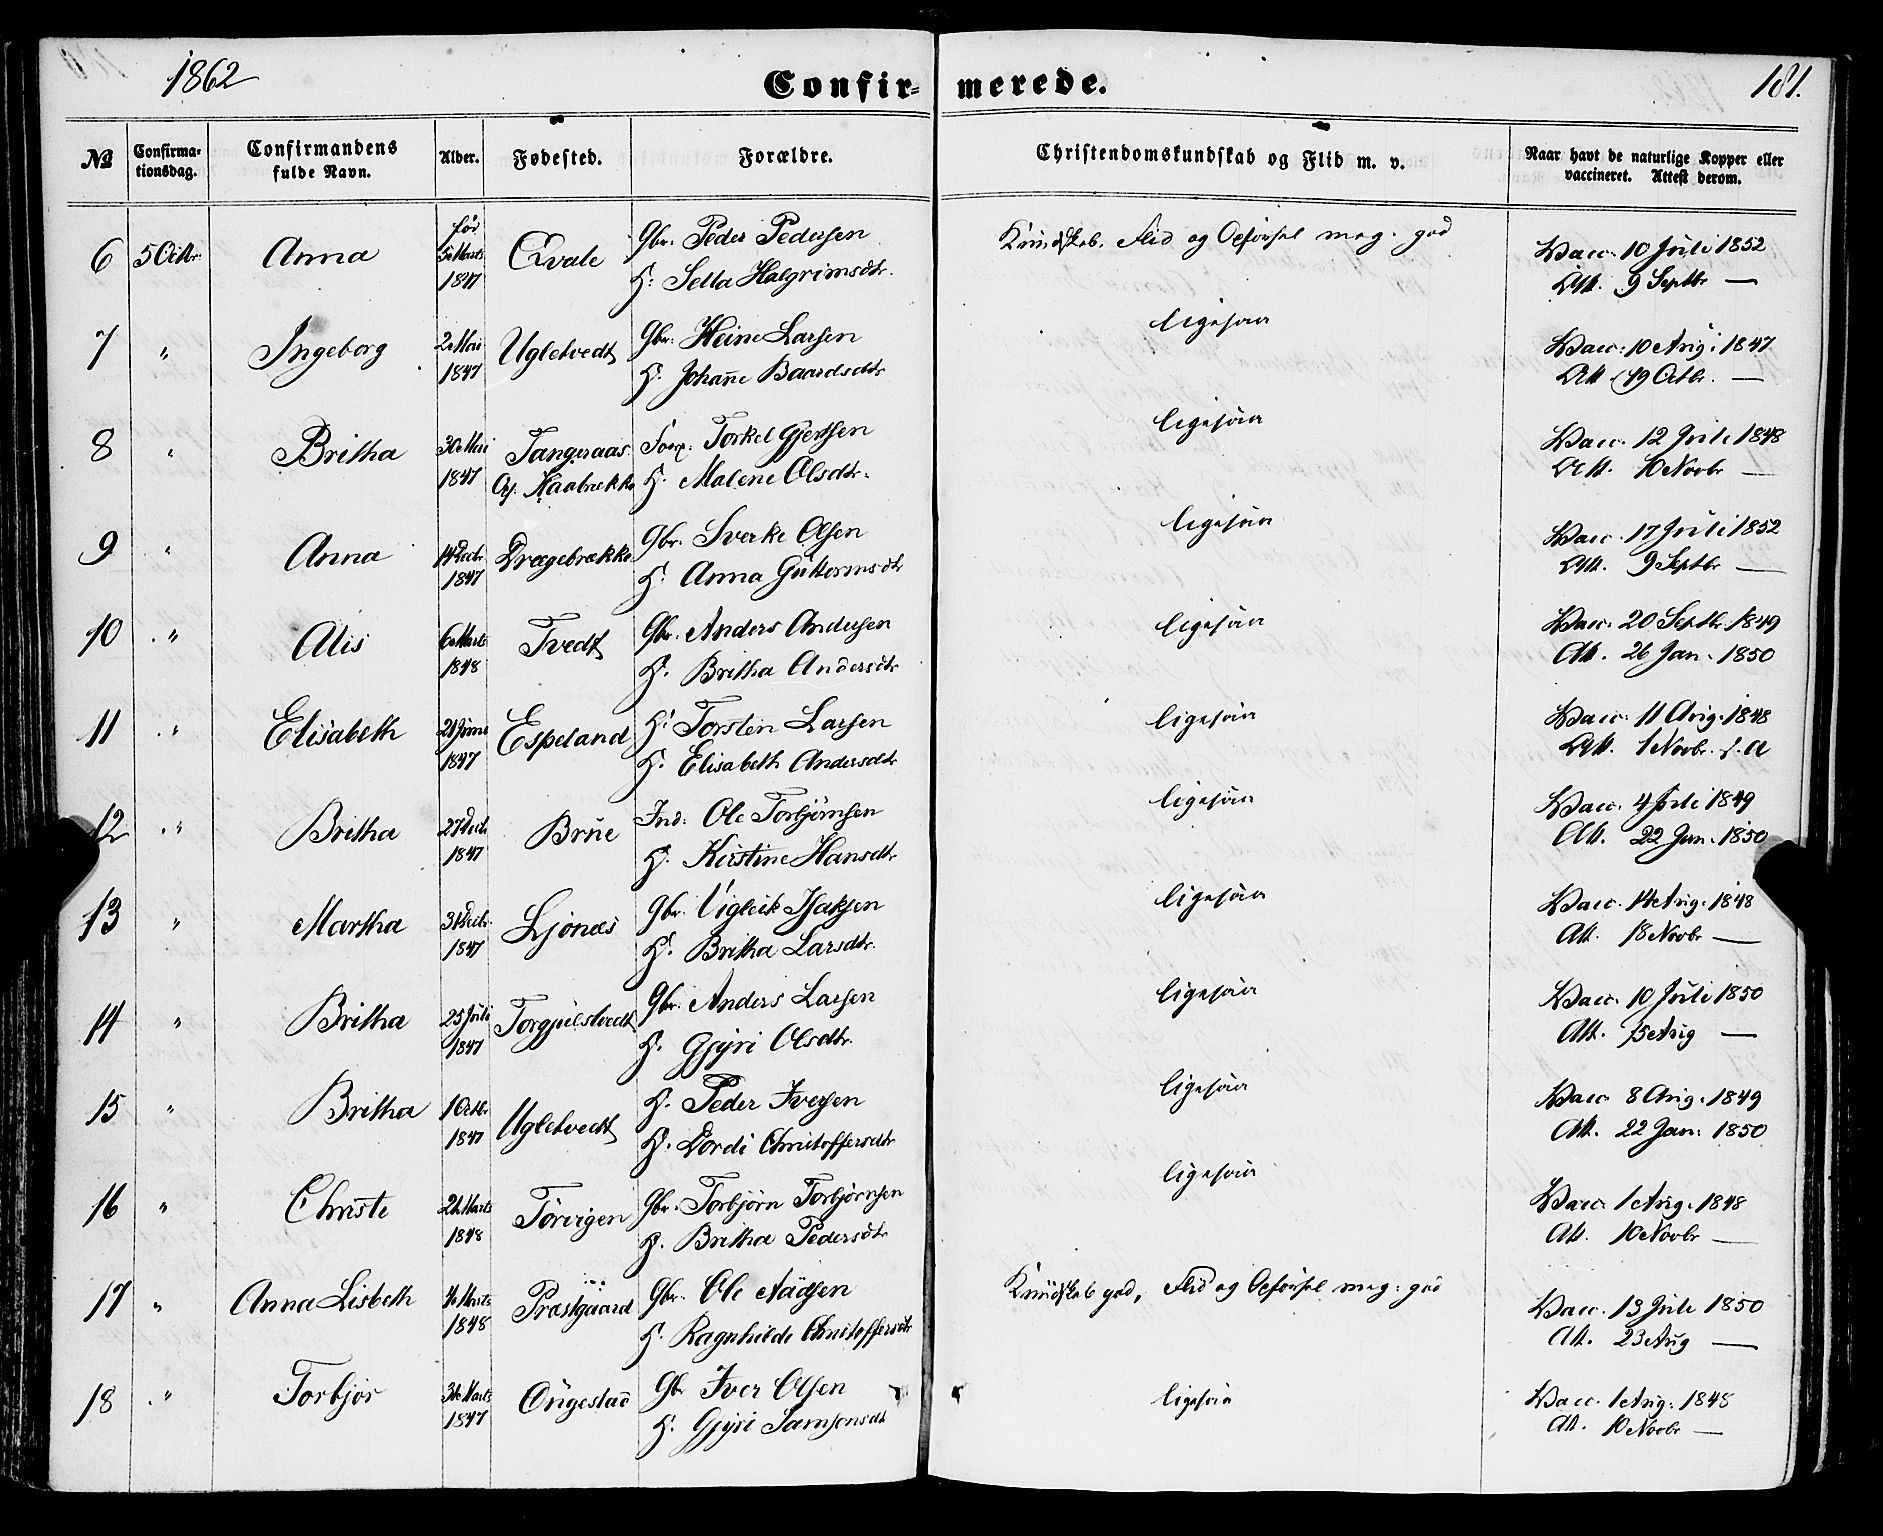 1862
Confir- merede.
181.
№ Confirma-tionsdag. Confirmandens fulde Navn. Alder. Fødested. Forældre. Christendomskundskab og Flid m. v. Naar havt de naturlige Kopper eller vaccineret. Attest derom.
6 5 Octbr. Anna før 5 Marts 1847 Qvale Gbr. Peder Pedersen Kundskab, Flid og Opførsel meg. god Vacc. 10 Juli 1852
H. Sella Halgrimsdtr. Att. 9 Septbr —
7 " Ingeborg 2 Mai 1847 Ugletvedt Gbr. Heine Larsen ligesaa Vacc. 10 Aug. 1847
H. Johanne Baardsdtr Att. 19 Octbr. —
8 " Britha 30 Mai 1847 Tangeraas Torkel Gjertsen ligesaa Vacc. 12 Juli 1848
H. Malene Olsdtr. Att. 10 Novbr —
9 " Anna 14 Decbr 1847 Drægebrække Gbr. Sverke Olsen ligesaa Vacc. 17 Juli 1852
H. Anna Guttormsdtr Att. 9 Septbr —
10 " Alis 6 Marts 1848 Tvedt Gbr. Anders Andersen ligesaa Vacc. 20 Septbr. 1849
H. Britha Andersdtr Att. 26 Jan. 1850
11 " Elisabeth 21 Juni 1847 Espeland H. Torsten Larsen ligesaa Vacc. 11 Aug. 1848
H. Elisabeth Andersdtr Att. 1 Novbr. s. A
12 " Britha 27 Decb. 1847 Brue Ind. Ole Torbjørnsen ligesaa Vacc. 4 Juli 1849
H. Kirstine Hansdtr Att. 22 Jan. 1850
13 " Martha 31 Decbr. 1847 Ljønæs Gbr. Vigleik Isaksen ligesaa Vacc. 14 Aug. 1848
H. Britha Larsdtr. Att. 18 Novbr —
14 " Britha 25 Juli 1847 Torgjulstvedt Gbr. Anders Larsen ligesaa Vacc. 10 Juli 1850
H. Gjyri Olsdtr. Att. 15 Aug —
15 " Britha 1 Octbr 1847 Ugletvedt H. Peder Iversen ligesaa Vacc. 8 Aug. 1849
H. Dordi Christoffersdtr Att. 22 Jan. 1850
16 " Christi Marts 1848 Tørvigen Gbr. Torbjørn Torbjørnsen ligesaa Vacc. 1 Aug. 1848
H. Britha Pedersdtr Att. 10 Novbr —
17 " Anna Lisbeth Marts 1848 Præstgaard Gbr. Ole Aadsen Kundskab god, Flid og Opførsel meg. god Vacc. 13 Juli 1850
H. Ragnhilde Christoffersdtr Att. 23 Aug —
18 " Torbjør Marts 1847 Øngestad Gbr Iver Olsen ligesaa Vacc. 1 Aug. 1848
H. Gjyri Samsonsdt Att. 10 Novbr —